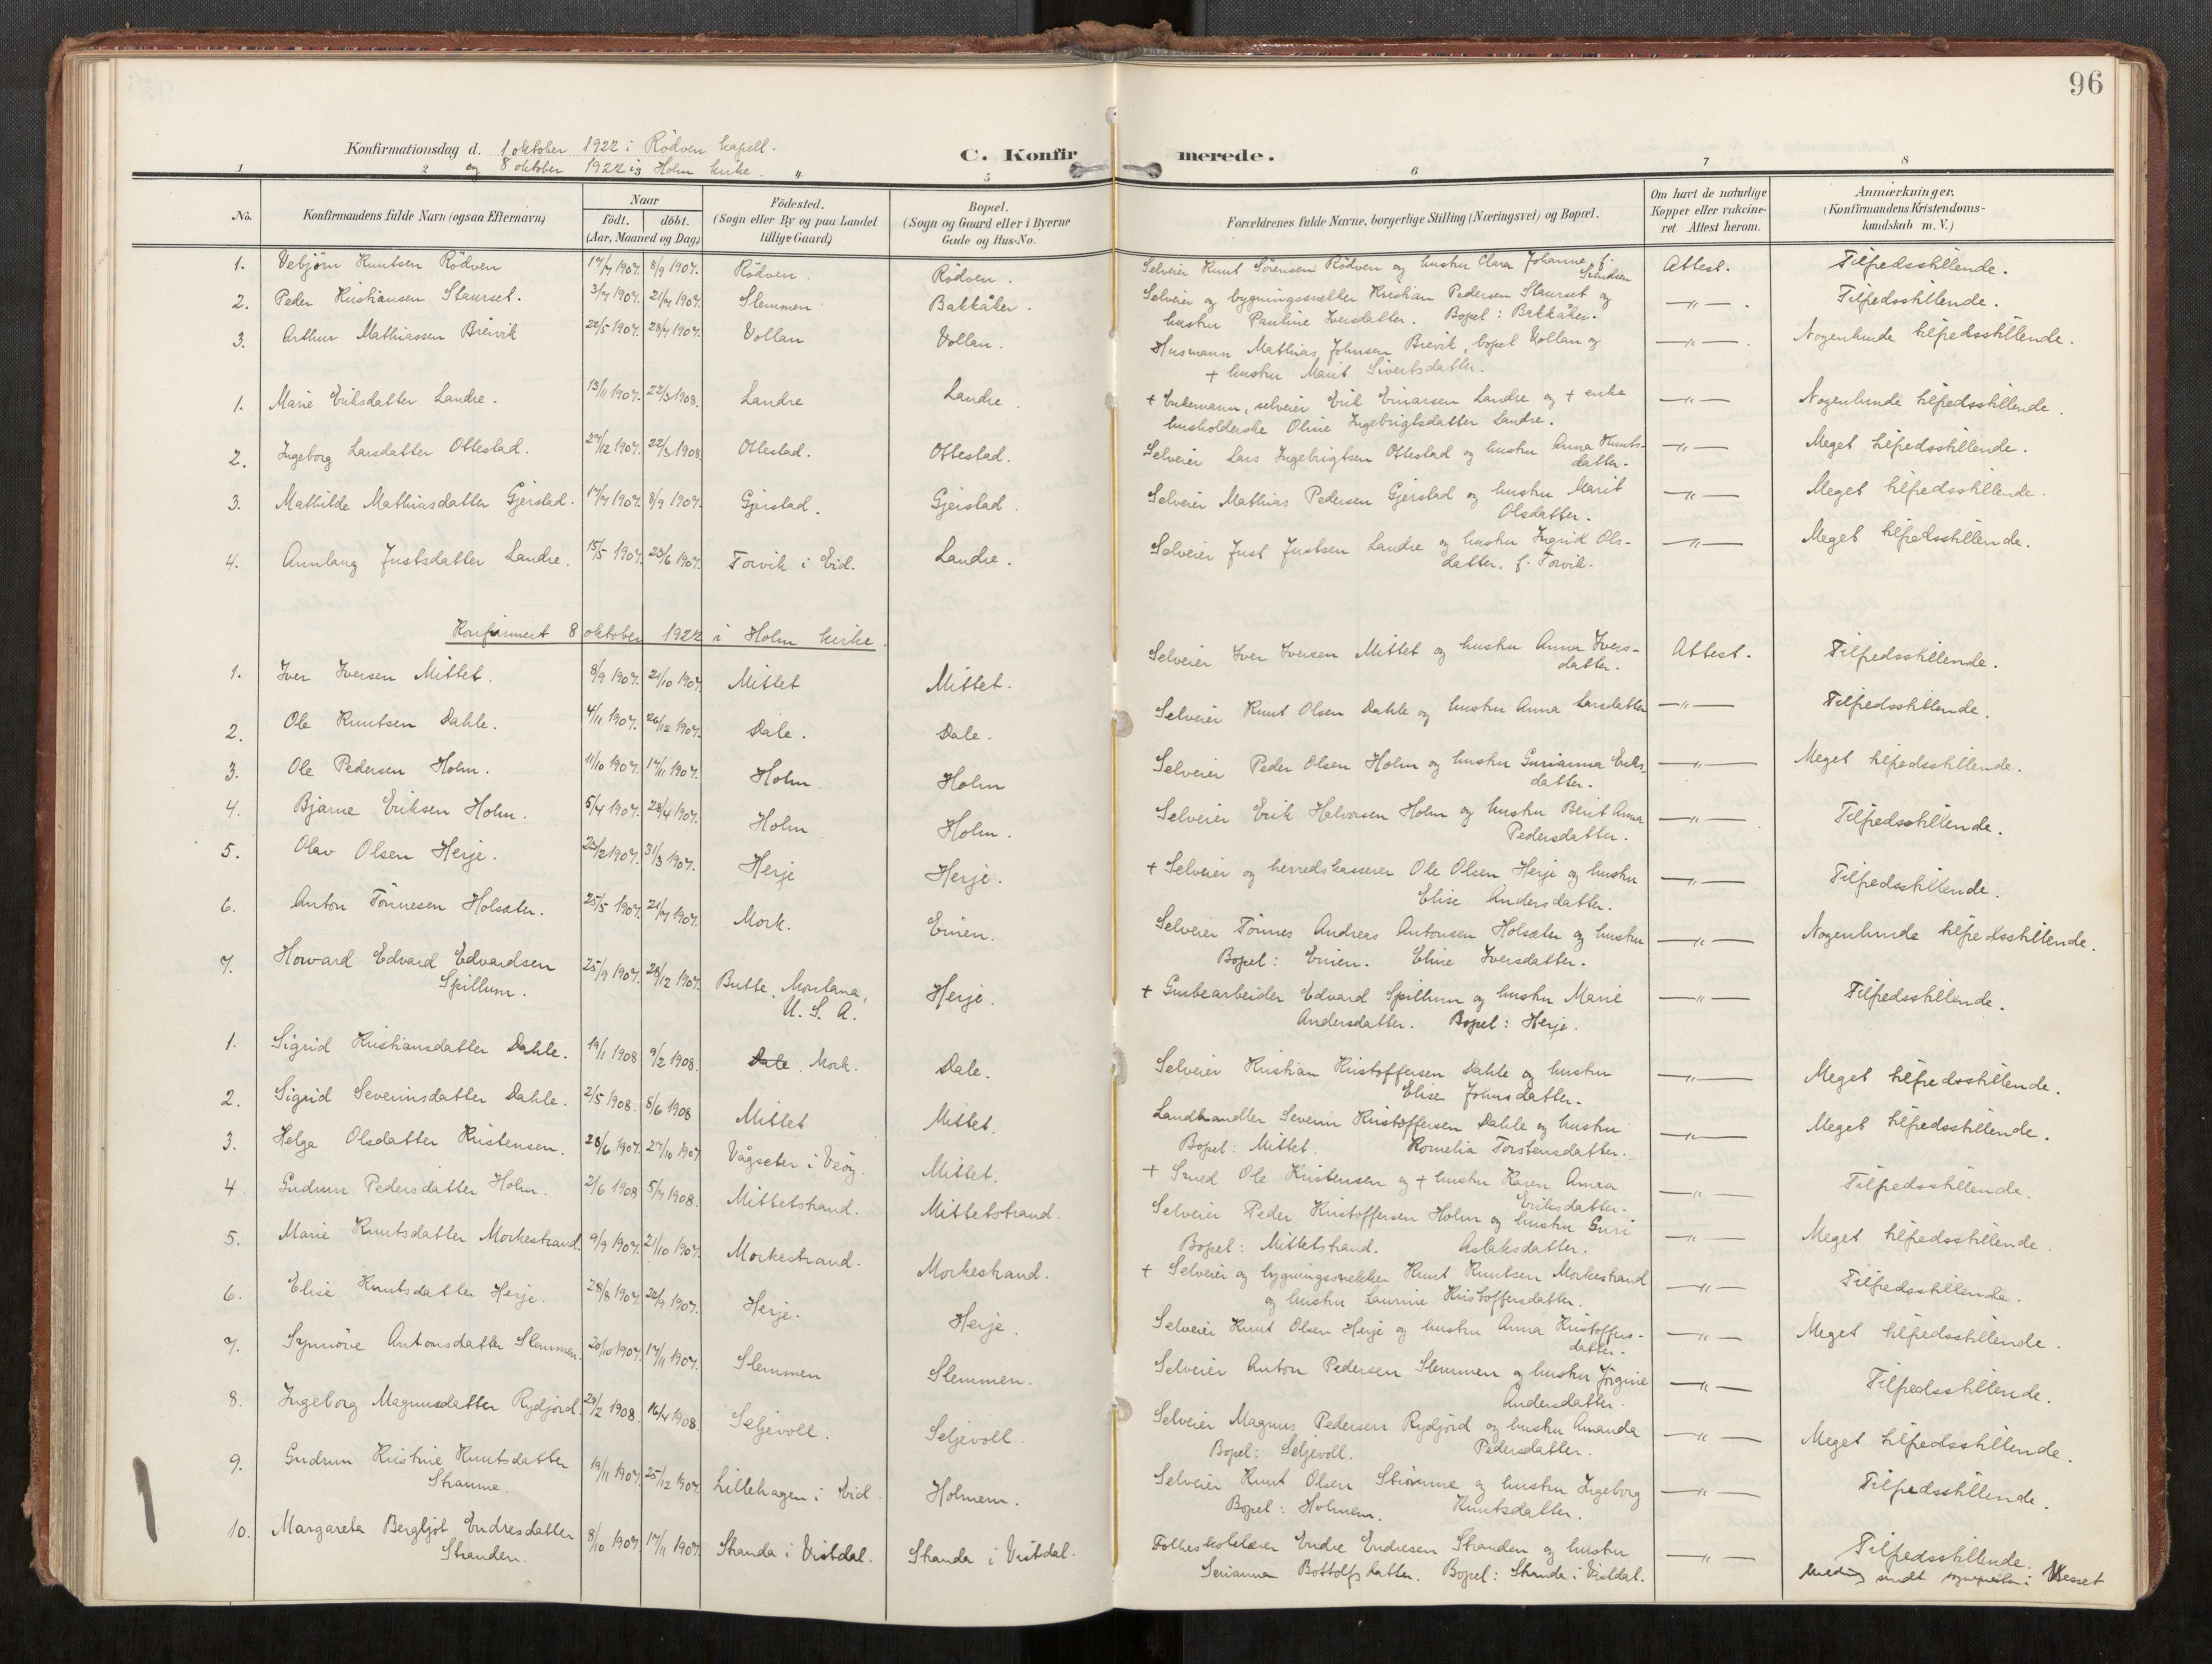 96
Konfirmationsdag d. 1 oktober 1922 i Rödven kapell.
og 8 oktober 1922 i Holm kirke.
C. Konfirmerede.
1 2 3 4 5 6 7 8
No. Konfirmandens fulde Navn (ogsaa Efternavn) Naar födt. döbt. (Aar, Maaned og Dag) Födested. (Sogn eller By og paa Landet tillige Gaard) Bopæl. (Sogn og Gaard eller i Byerne Gade og Hus-No. Forældrenes fulde Navne, borgerlige Stilling (Næringsvei) og Bopæl. Om havt de naturlige Kopper eller vakcineret. Attest herom. Anmærkninger. (Konfirmandens Kristendomskundskab m. V.)
1. Vebjörn Knutsen Rödven 17/7 1907. 8/9 1907. Rödven Rödven. Selveier Knut Sörensen Rödven og hustru Clara Johanne, f. Svendsen Attest. Tilfredsstillende.
2. Peder Kristiansen Staurset. 3/7 1907. 21/7 1907. Slemmen Bakkåker. Selveier og bygningssnekker Kristian Pedersen Staurset og
hustru Pauline Iversdatter. Bopel: Bakkåker. —"— . Tilfredsstillende.
3. Arthur Mathiassen Breivik 22/5 1907. 28/7 1907. Vollan Vollan. Husmann Mathias Johnsen Brevik, bopel Vollan og
+ hustru Marit Sivertsdatter. —"— . Nogenlunde tilfredsstillende.
1. Marie Eriksdatter Landre. 13/11 1907. 22/3 1908. Landre Landre. + Enkemann, selveier Erik Einarsen Landre og + enke
husholderske Oline Ingebrigtsdatter Landre. —"— Nogenlunde tilfredsstillende.
2. Ingeborg Larsdatter Ottestad. 27/12 1907. 22/3 1908. Ottestad. Ottestad. Selveier Lars Ingebrigtsen Ottestad og hustru Anna Knuts-
datter. —"— Meget tilfredsstillende.
3. Mathilde Mathiasdatter Gjerstad. 17/7 1907. 8/9 1907. Gjerstad. Gjerstad. Selveier Mathias Pedersen Gjerstad og hustru Marit
Olsdatter. —"— Meget tilfredsstillende.
4. Annlaug Justsdatter Landre. 15/5 1907. 23/6 1907. Torvik i Eid. Landre. Selveier Just Justsen Landre og hustru Ingrid Ols-
datter, f. Torvik. —"— Meget tilfredsstillende.
Konfirmert 8 oktober 1922 i Holm kirke.
1. Iver Iversen Mittet. 8/9 1907. 21/10 1907. Mittet Mittet. Selveier Iver Iversen Mittet og hustru Anna Ivers-
datter. Attest. Tilfredsstillende.
2. Ole Knutsen Dahle. 4/11 1907. 26/12 1907. Dale. Dale. Selveier Knut Olsen Dahle og hustru Anna Larsdatter —"— Tilfredsstillende.
3. Ole Pedersen Holm. 11/10 1907. 17/11 1907. Holm Holm Selveier Peder Olsen Holm og hustru Gurianna Eriks-
datter. —"— Meget tilfredsstillende.
4. Bjarne Eriksen Holm. 5/4 1907. 28/4 1907. Holm Holm. Selveier Erik Halvorsen Holm og hustru Berit Anna
Pedersdatter. —"— Tilfredsstillende.
5. Olav Olsen Herje. 22/2 1907. 31/3 1907. Herje Herje. + Selveier og herredskasserer Ole Olsen Herje og hustru
Elise Andersdatter. —"— Tilfredsstillende.
6. Anton Tönnesen Holsæter. 25/5 1907. 21/7 1907. Mork. Einen. Selveier Tönnes Andreas Antonsen Holsæter og hustru
Bopel: Einen. Eline Iversdatter. —"— Nogenlunde tilfredsstillende.
7. Howard Edvard Edvardsen
Spillum. 25/9 1907. 28/12 1907. Butte, Montana,
U. S. A. Herje. + Grubearbeider Edvard Spillum og hustru Marie
Andersdatter. Bopel: Herje. —"— Tilfredsstillende.
1. Sigrid Kristiansdatter Dahle. 19/1 1908 9/2 1908. Dale. Mork. Dale. Selveier Kristian Kristoffersen Dahle og hustru
Elise Johnsdatter. —"— Meget tilfredsstillende.
2. Sigrid Severinsdatter Dahle. 2/5 1908. 8/6 1908 Mittet Mittet. Landhandler Severin Kristoffersen Dahle og hustru
Bopel: Mittet. Kornelia Torstensdatter. —"— Meget tilfredsstillende.
3. Helga Olsdatter Kristensen. 28/6 1907. 27/10 1907 Vågseter i Veöy. Mittet. + Smed Ole Kristensen og + hustru Karen Anna
Eriksdatter. —"— Tilfredsstillende.
4 Gudrun Pedersdatter Holm. 2/6 1908 5/7 1908. Mittetstrand. Mittetstrand. Selveier Peder Kristoffersen Holm og hustru Guri
Bopel: Mittetstrand. Aslaksdatter. —"— Meget tilfredsstillende.
5. Marie Knutsdatter Morkestrand. 9/9 1907. 21/10 1907. Morkestrand. Morkestrand. + Selveier og bygningssnekker Knut Knutsen Morkestrand
og hustru Laurine Kristoffersdatter. —"— Tilfredsstillende.
6. Elise Knutsdatter Herje. 28/8 1907. 22/9 1907. Herje. Herje. Selveier Knut Olsen Herje og hustru Anna Kristoffers-
datter. —"— Meget tilfredsstillende.
7. Synnöve Antonsdatter Slemmen. 20/10 1907. 17/11 1907. Slemmen Slemmen. Selveier Anton Pedersen Slemmen og hustru Jörgine
Andersdatter. —"— Tilfredsstillende.
8. Ingeborg Magnusdatter Rydjord. 29/2 1908. 16/4 1908. Seljevoll. Seljevoll. Selveier Magnus Pedersen Rydjord og hustru Amanda
Bopel: Seljevoll. Pedersdatter. —"— Meget tilfredsstillende.
9. Gudrun Kristine Knutsdatter
Straume. 19/11 1907. 25/12 1907. Lillehagen i Eid. Holmem. Selveier Knut Olsen Straume og hustru Ingeborg
Bopel: Holmem. Knutsdatter. —"— Tilfredsstillende.
10. Margareta Bergljot Endresdatter
Stranden. 8/10 1907. 17/11 1907. Stranda i Vistdal. Stranda i Vistdal. Folkeskolelærer Endre Endresen Stranden og hustru
Serianna Bottolfsdatter. Bopel: Stranda i Vistdal. —"— Tilfredsstillende.
Melding sendt sognepresten i Nesset